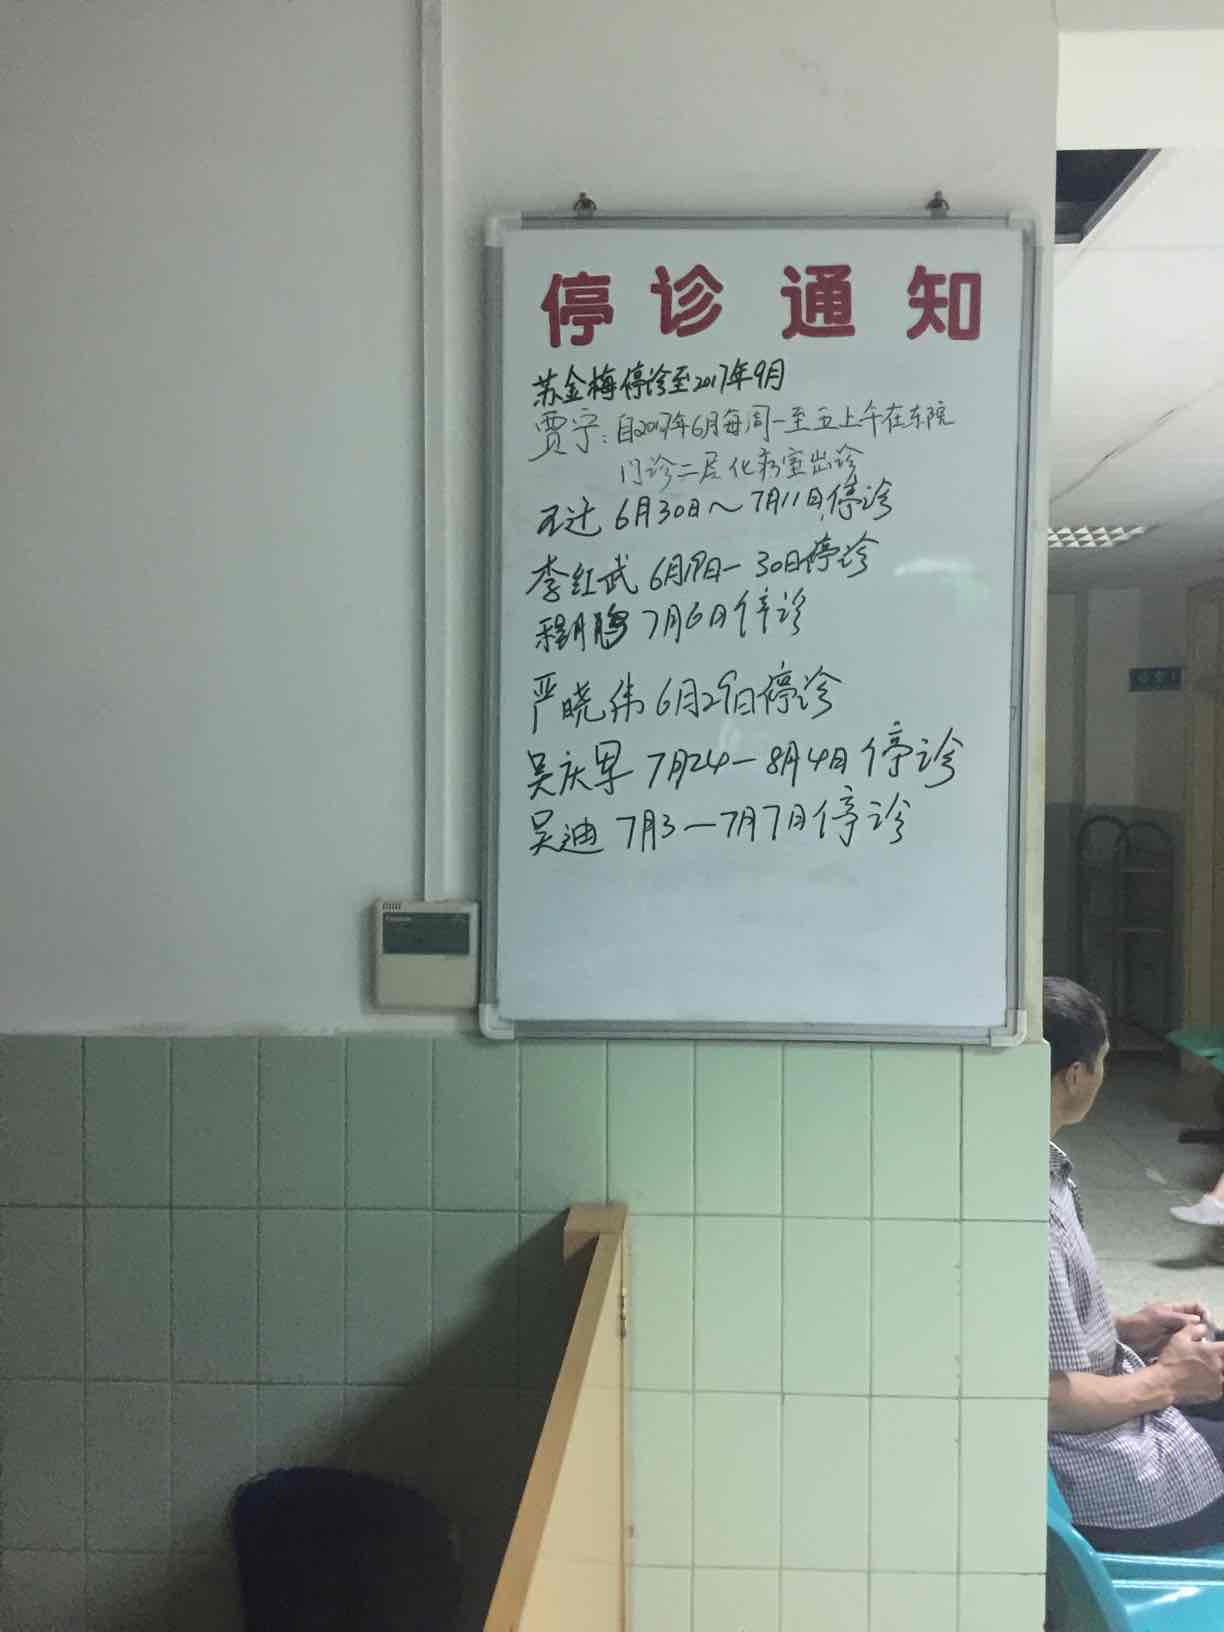 停诊通知
苏金梅停诊至2017年9月
贾宁:自2017年6月每周一至五上午在东院
门诊二层化疗室出诊
王迁 6月30日～7月11日停诊
李红武 6月19日—30日停诊
7月6日停诊
严晓伟 6月29日停诊
吴庆军 7月24—8月4日停诊
吴迪 7月3—7月7日停诊